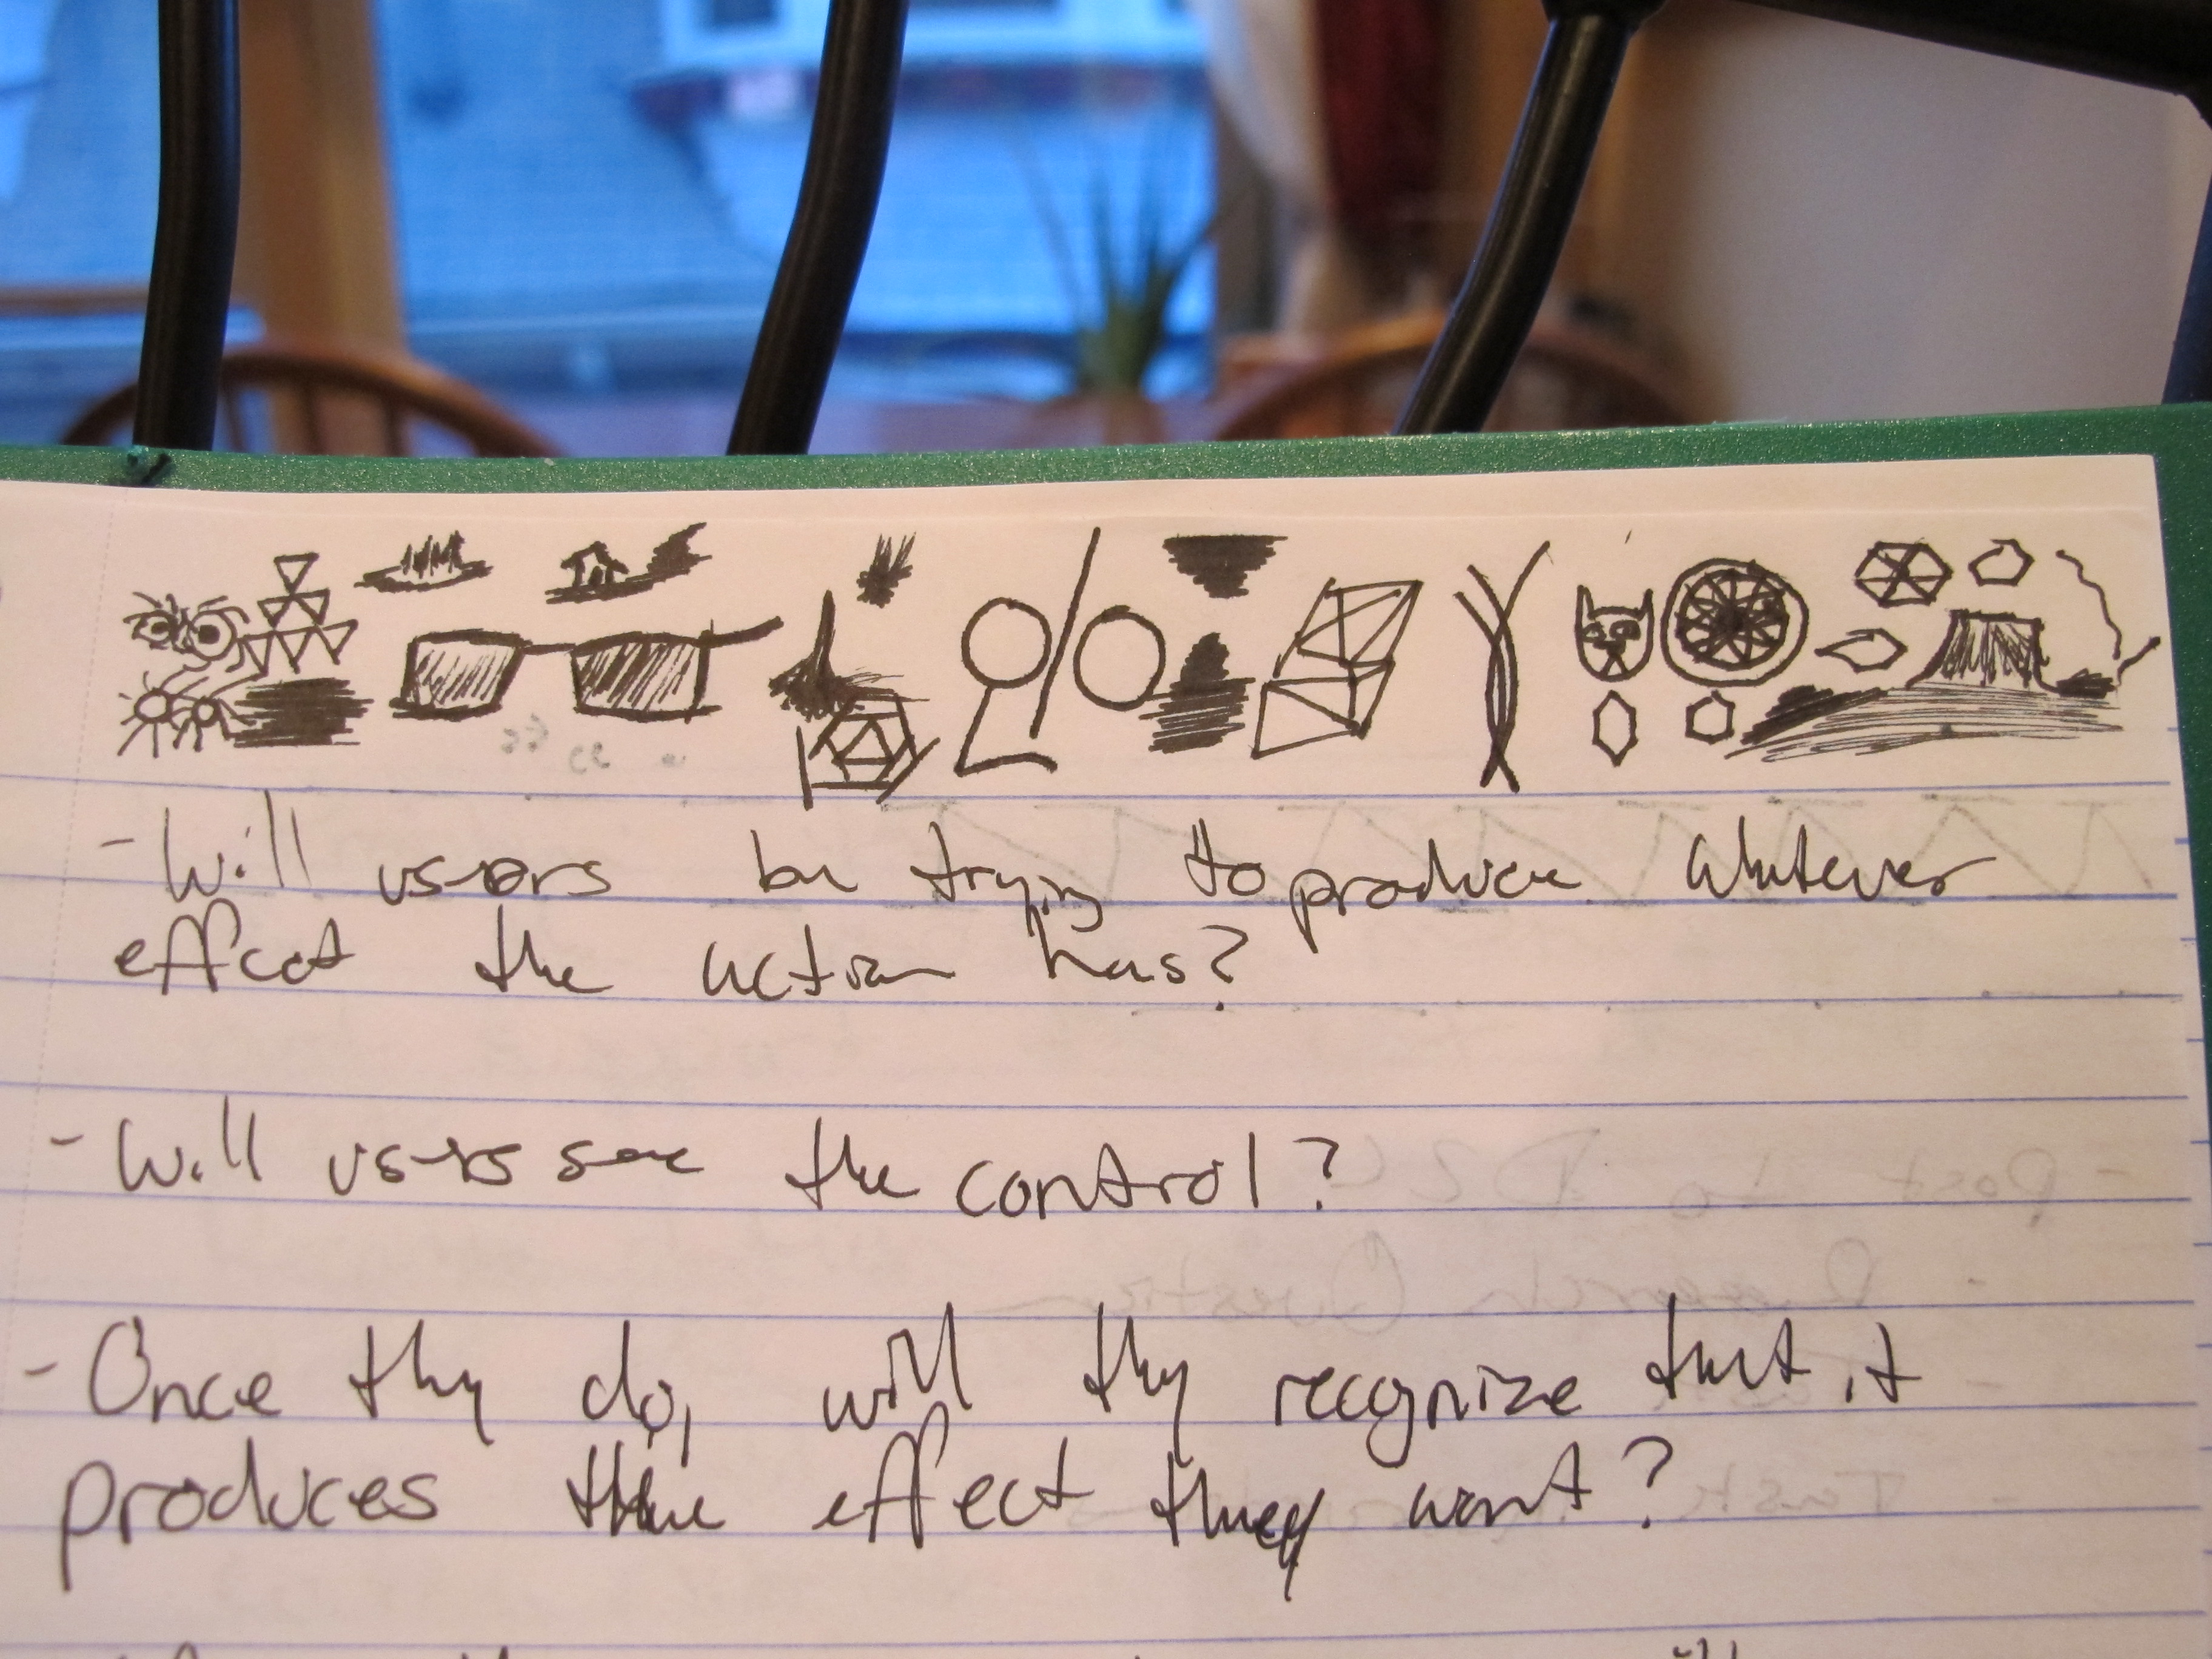 - Will users be trying to produce whatever
effect the action has?
- Will users see the control?
- Once they do, will they recognize that it
produces the effect they want?